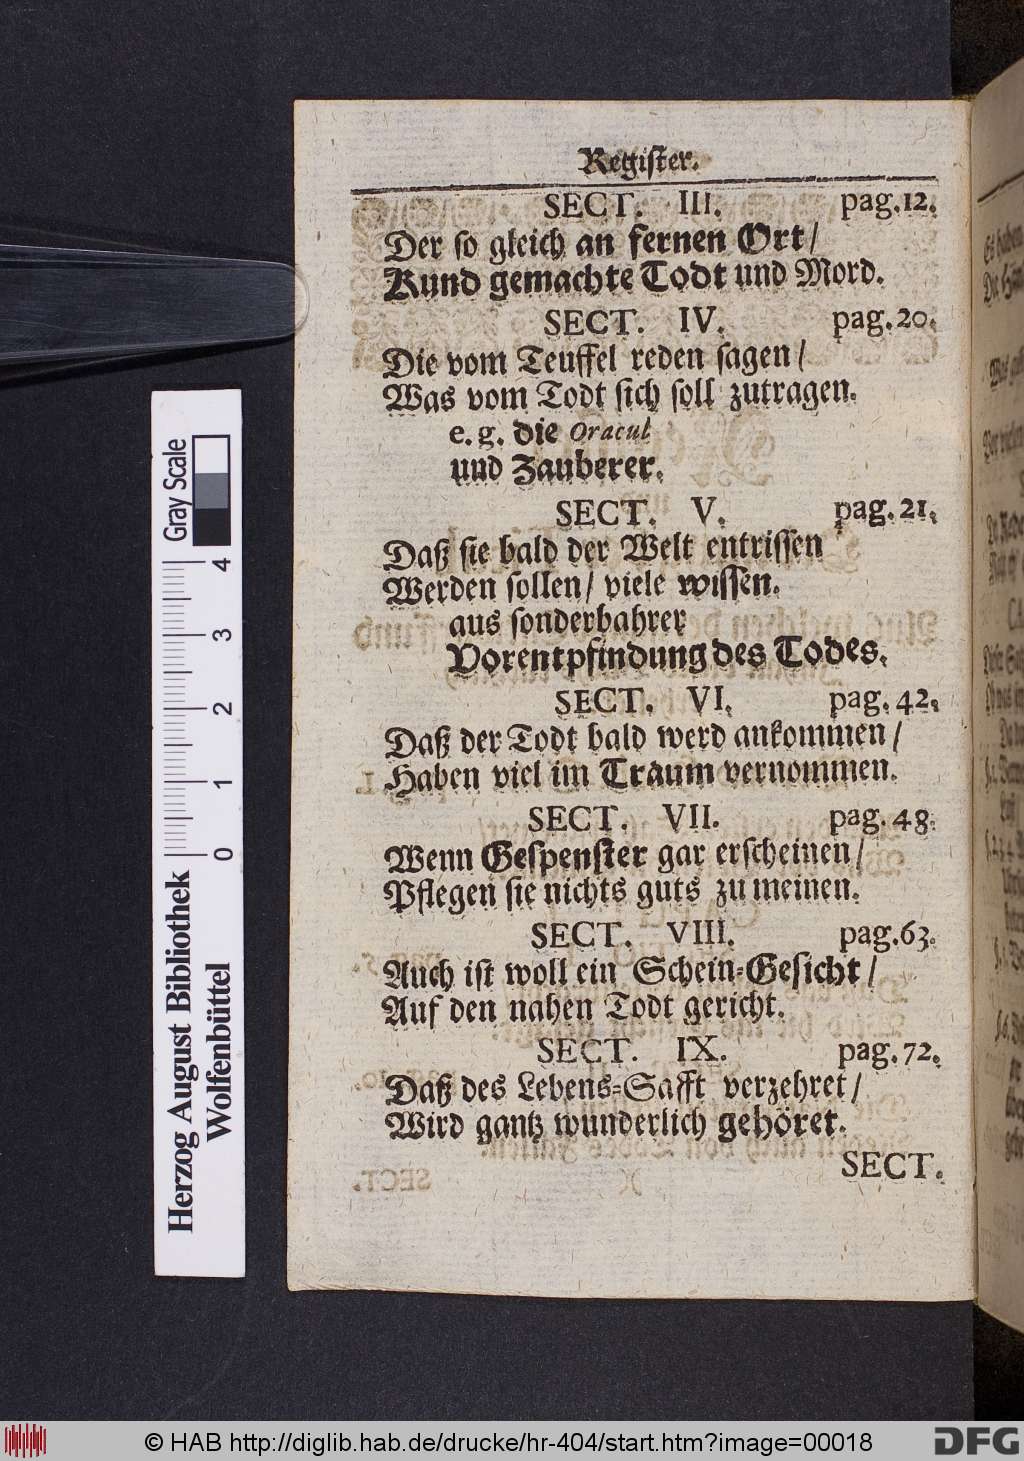 Register.
SECT. III. pag.12.
Der so gleich an fernen Ort/
Kund gemachte Todt und Mord.
SECT. IV. pag.20.
Die vom Teuffel reden sagen/
Was vom Todt sich soll zutragen.
e. g. die Oracul
und Zauberer.
SECT. V. pag.21.
Daß sie bald der Welt entrissen
Werden sollen/ viele wissen.
aus sonderbahrer
Vorentpfindung des Todes.
SECT. VI. pag. 42.
Daß der Todt bald werd ankommen/
Haben viel im Traum vernommen.
SECT. VII. pag. 48.
Wenn Gespenster gar erscheinen/
Pflegen sie nichts guts zu meinen.
SECT. VIII. pag.63.
Auch ist woll ein Schein-Gesicht/
Auf den nahen Todt gericht.
SECT. IX. pag.72.
Daß des Lebens-Safft verzehret/
Wird gantz wunderlich gehöret.
SECT.
Gray Scale
4
3
2
1
0
Herzog August Bibliothek
Wolfenbüttel
© HAB http://diglib.hab.de/drucke/hr-404/start.htm?image=00018
DFG